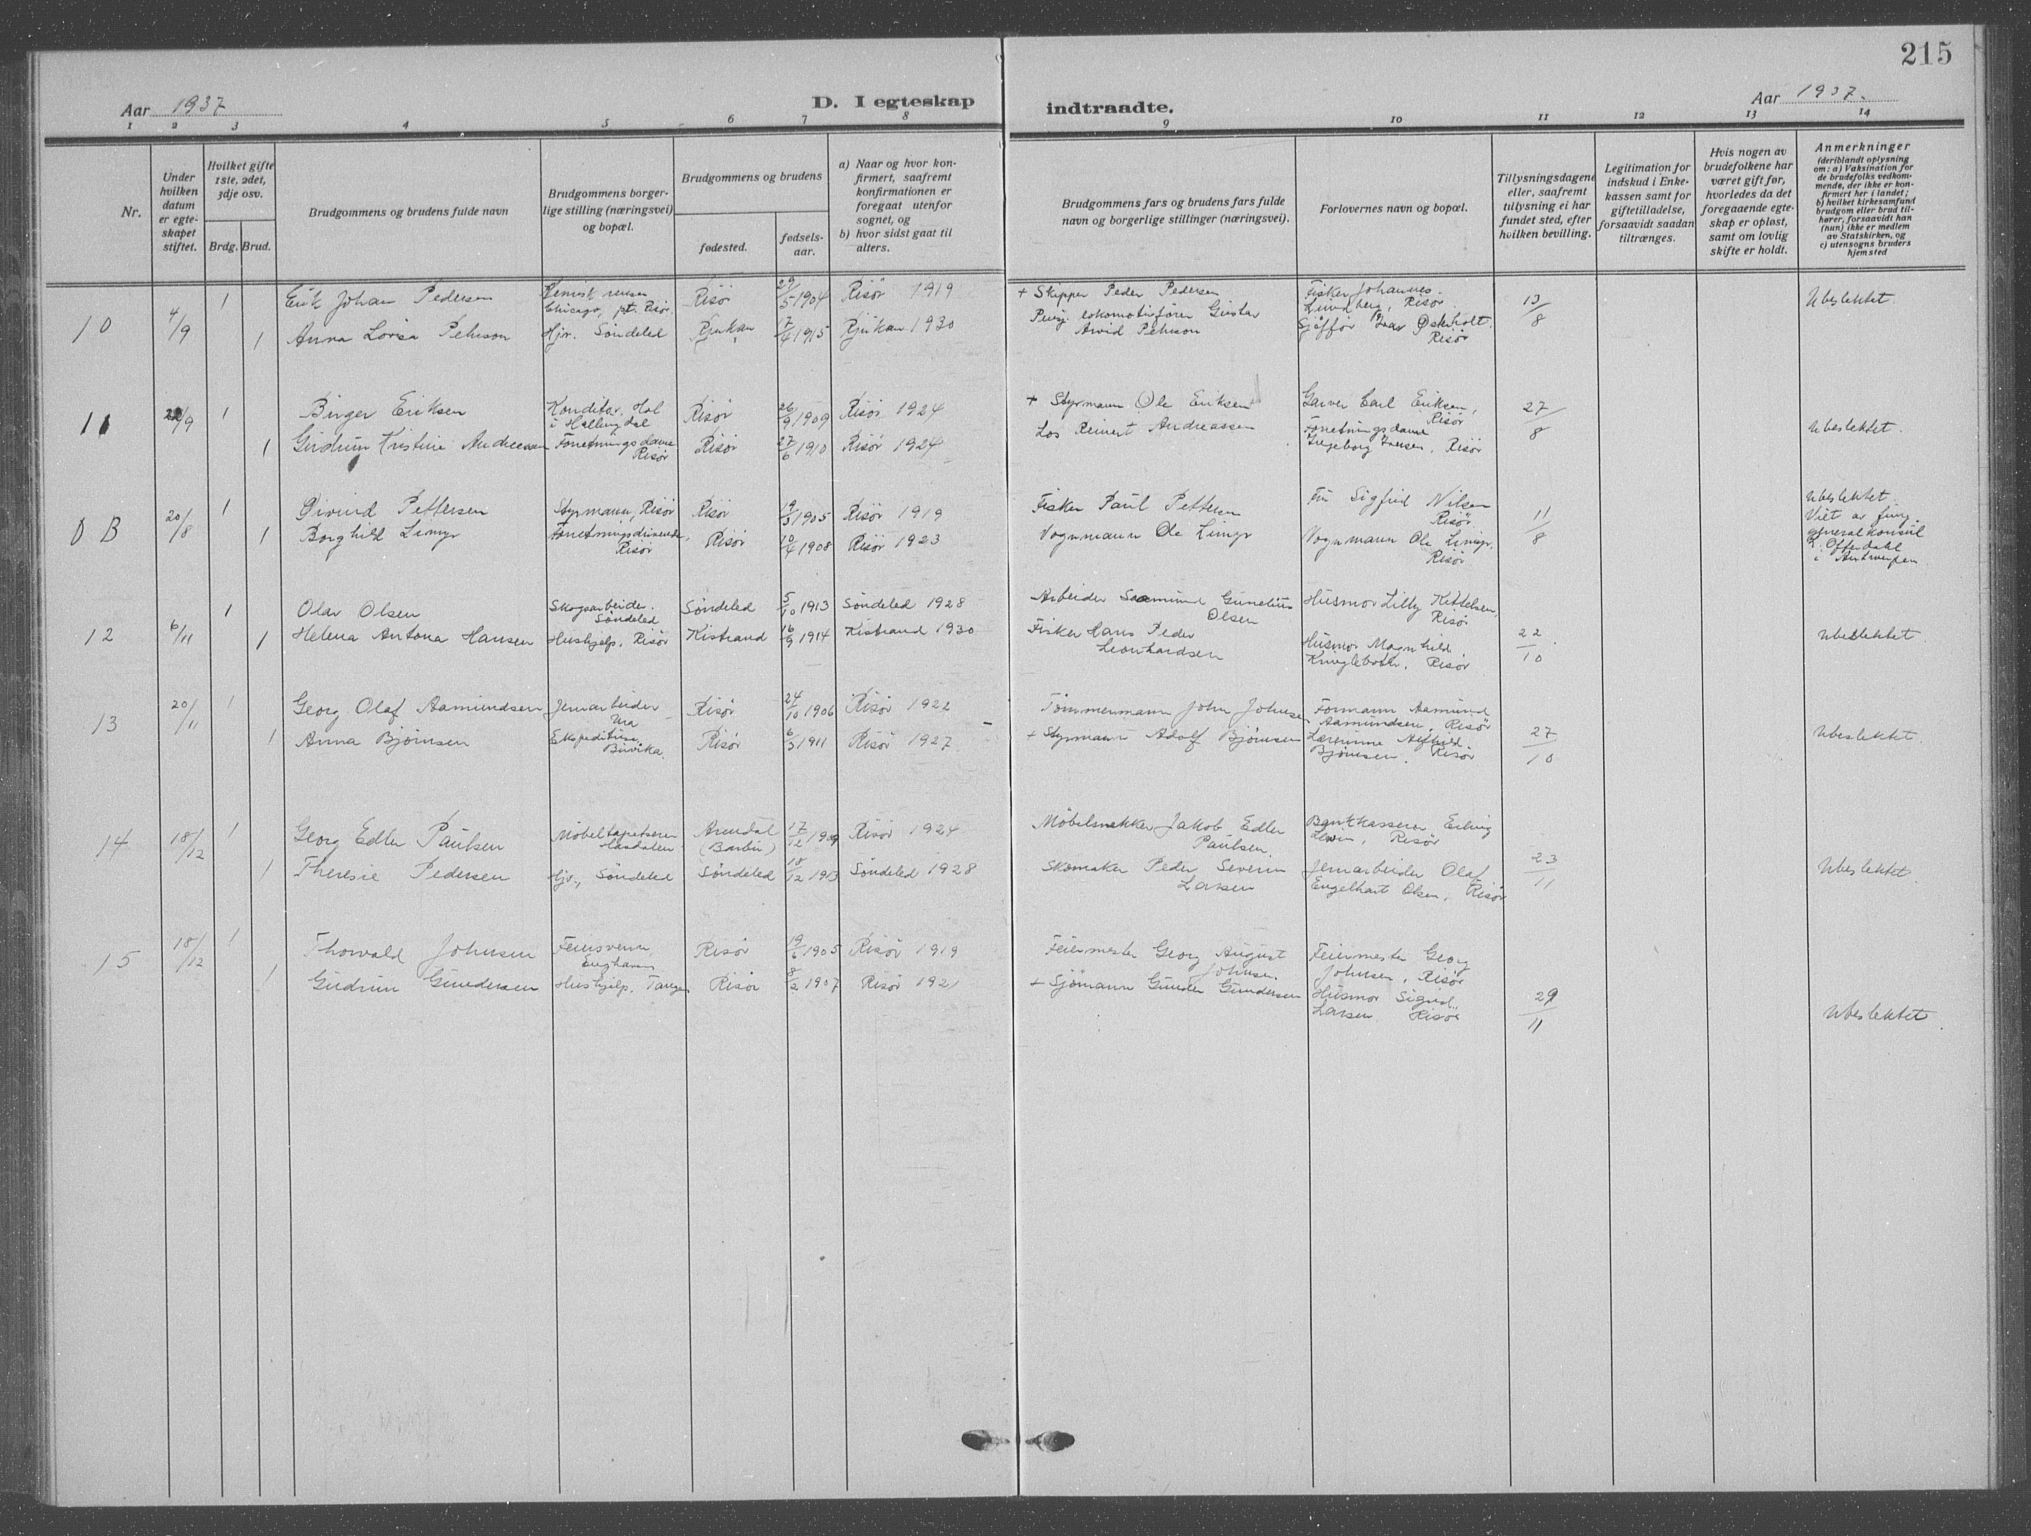 215
Aar 1937
D. I egteskap
indtraadte.
Aar 1937.
1 2 3 4 5 6 7 8 9 10 11 12 13 14
Nr.
Under hvilken datum er egteskapet stiftet.
Hvilket gifte 1ste, 2det, 3dje osv.
Brdg. Brud.
Brudgommens og brudens fulde navn
Brudgommens borgerlige stilling (næringsvei) og bopæl.
Brudgommens og brudens
fødested.
fødselsaar.
a) Naar og hvor konfirmert, saafremt konfirmationen er foregaat utenfor sognet, og
b) hvor sidst gaat til alters.
Brudgommens fars og brudens fars fulde navn og borgerlige stillinger (næringsvei).
Forlovernes navn og bopæl.
Tillysningsdagene eller, saafremt tillysning ei har fundet sted, efter hvilken bevilling.
Legitimation for indskud i Enkekassen samt for giftetilladelse, forsaavidt saadan tiltrænges.
Hvis nogen av brudefolkene har været gift før, hvorledes da det foregaaende egteskap er opløst, samt om lovlig skifte er holdt.
Anmerkninger
(deriblandt oplysning om: a) Vaksination for de brudefolks vedkommende, der ikke er konfirmert her i landet; b) hvilket kirkesamfund brudgom eller brud tilhører, forsaavidt han (hun) ikke er medlem av Statskirken, og c) utensogns bruders hjemsted
10 4/9 1 Erik Johan Pedersen Kemisk renser Chicago, pt. Risør Risör 29/5 1904 Risör 1919 + Skipper Peder Pedersen Fisker Johannes Lundberg, Risör 13/8 Ubeslektet.
1 Anna Lovisa Pehrson Hjv. Söndeled Rjukan 17/4 1915 Rjukan 1930 Pensj. lokomotivförer Gustav Arvid Pehrson Sjåffør Ivar Øksholt. Risör
11 22/9 1 Birger Eriksen Konditor, Hol i Hallingdal Risör 26/9 1909 Risör 1924 + Styrmann Ole Eriksen Garver Carl Eriksen, Risör 27/8 Ubeslektet.
1 Gudrun Kristine Andreassen Forretningsdame Risör Risör 27/6 1910 Risör 1924 Los Reinert Andreassen Forretningsdame Ingeborg Jensen, Risör
0 B 20/8 1 Øivind Pettersen Styrmann, Risör Risör 19/3 1905 Risör 1919 Fisker Paul Pettersen Frk Sigfrid Nilsen Risör 11/8 Ubeslektet. Viet av fung. generalkonsul L. Oftedahl i Antwerpen
1 Borghild Limyr Risör Risör 10/4 1908 Risör 1923 Vognmann Ole Limyr Vognmann Ole Limyr, Risör
12 6/11 1 Olav Olsen Skogsarbeider. Söndeled Söndeled 5/10 1913 Söndeled 1928 Arbeider Saamund Gunelius Olsen Husmor Lilly Kittelsen Risör 22/10 Ubeslektet.
1 Helena Antona Hansen Hushjelp, Risör Kistrand 16/9 1914 Kistrand 1930 Fisker Hans Peder Leonhardsen Husmor Magnhild Risör
13 20/11 1 Georg Olaf Aamundsen Jernarbeider Risör 24/10 1906 Risör 1922 Tömmermann John Johnsen Formann Aamund Aamundsen, Risör 27/10 Ubeslektet.
1 Anna Björnsen Ekspeditrise, Buvika. Risör 6/3 1911 Risör 1927 + Styrmann Adolf Björnsen Lærerinne Alfhild Björnsen, Risör
14 18/12 1 Georg Edler Paulsen Möbeltapetserer Hasdalen Arendal (Barbu) 17/12 1909 Risör 1924 Möbelsnekker Jakob Edler Paulsen. Bankkasserer Erling Lewin, Risör 23/11 Ubeslektet
1 Theresie Pedersen Hjv., Söndeled Söndeled 18/12 1913 Söndeled 1928 Skomaker Peder Severin Larsen Jernarbeider Olaf Engelhart Olsen, Risör
15 18/12 1 Thorvald Johnsen Feiersvenn Enghaven Risör 19/6 1905 Risör 1919 Feiermester Georg August Johnsen. Feiermester Georg Johnsen, Risör 29/11 Ubeslektet
1 Gudrun Gundersen Hushjelp, Tangen Risör 8/2 1907 Risör 1921 + Sjömann Gunder Gundersen Husmor Sigrid Larsen Risör